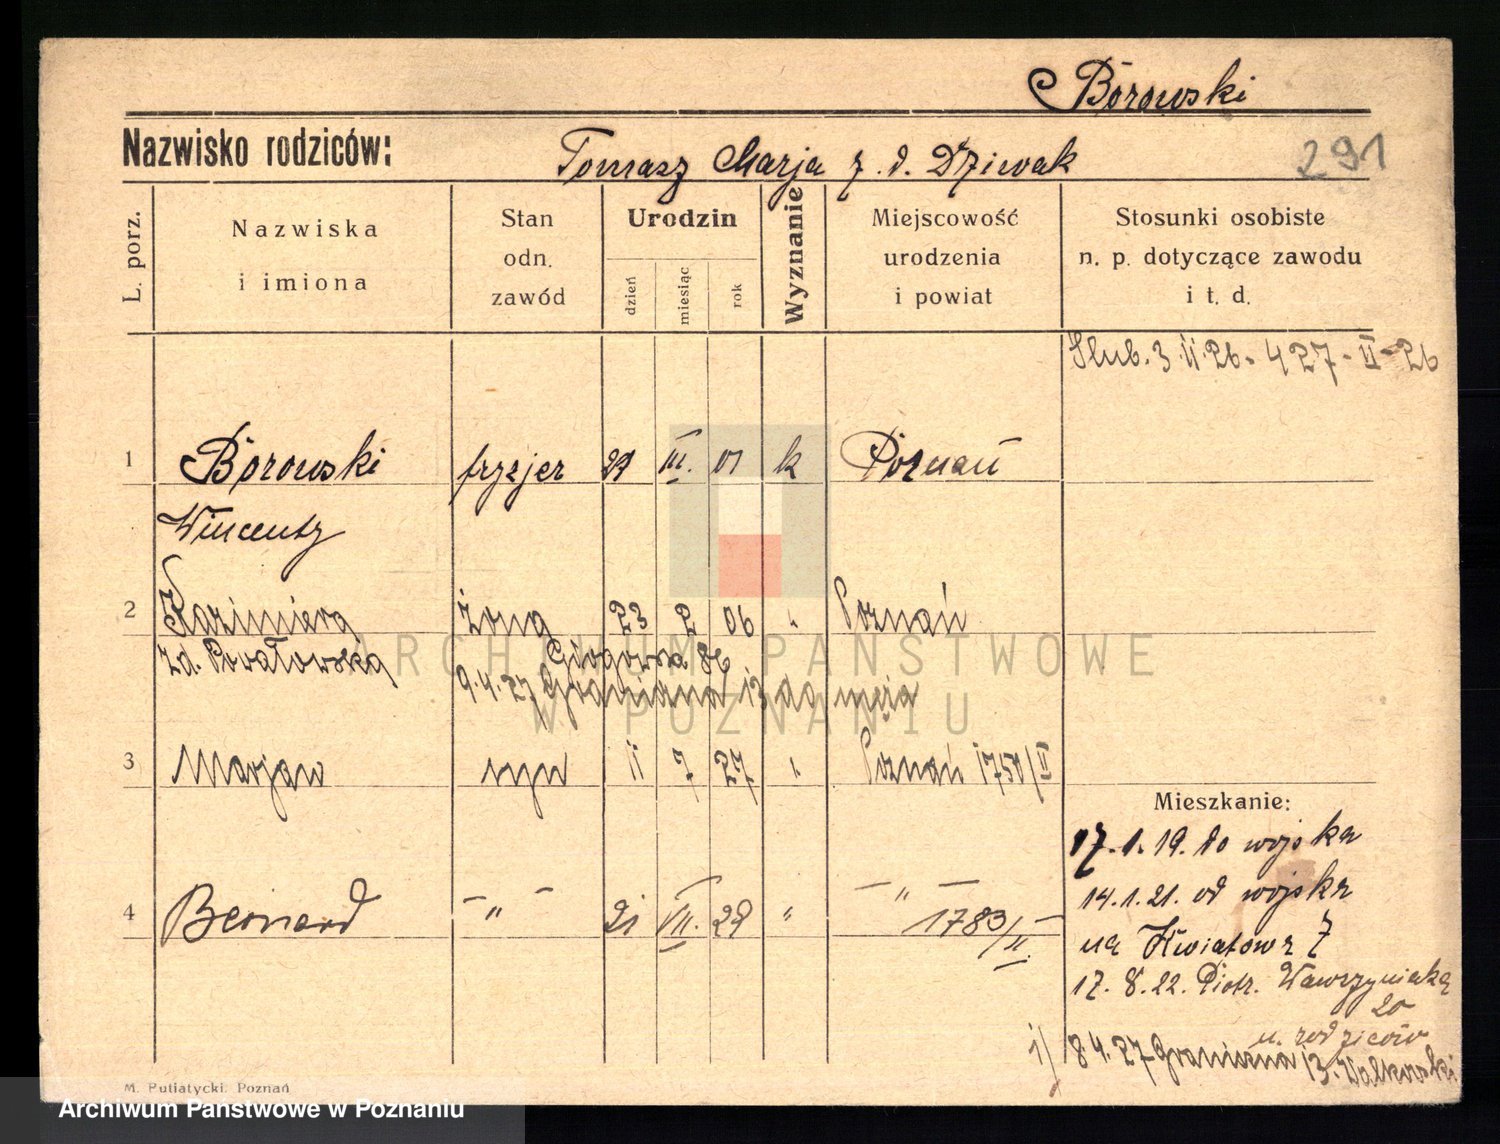 Borowski
Nazwisko rodziców: Tomasz Marja z. d. Dziwak 291
L. porz.
Nazwiska i imiona
Stan odn. zawód
Urodzin
dzień miesiąc rok
Wyznanie
Miejscowość urodzenia i powiat
Stosunki osobiste n. p. dotyczące zawodu i t. d.
Ślub. 3.11.26 - 427-II-26
1 Borowski fryzjer III. 01 k Poznań
Wincenty
2 Kazimiera żona 23 2 06 " Poznań
zd. Powałowska Głogowska 86
9.4.27 Graniczna 13 do męża
3 Marjan syn 11 7 27 " Poznań 1750/II
Mieszkanie:
17.1.19. do wojska
4 Bernard - " - 21 VII. 28 " - " - 1783/II.
14.1.21. od wojska
na Kwiatowa 7
17.8.22. Piotr. Wawrzyniaka
20
u. rodziców
1/ 8 4.27 Graniczna 13. Walkowski
M. Putiatycki. Poznań
ARCHIWUM PAŃSTWOWE
W POZNANIU
Archiwum Państwowe w Poznaniu